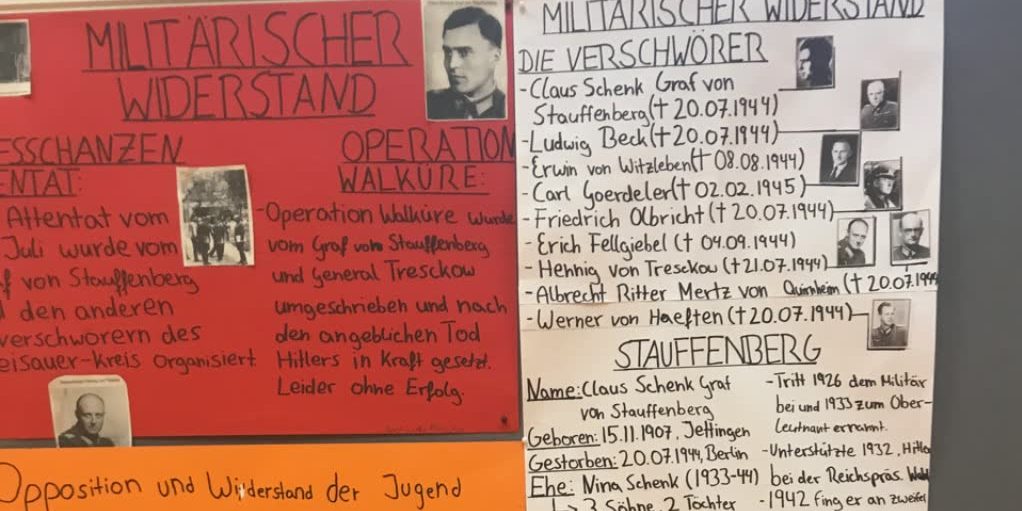 MILITÄRISCHER
WIDERSTAND
ESSCHANZEN
ENTAT:
Attentat vom
Juli wurde vom
f von Stauffenberg
d den anderen
verschworern des
eisauer-Kreis organisiert
OPERATION
WALKÜRE:
-Operation Walküre wurde
vom Graf von Stauffenberg
und General Tresckow
umgeschrieben und nach
den angeblichen Tod
Hitlers in Kraft gesetzt.
Leider ohne Erfolg.
Opposition und Widerstand der Jugend
MILITÄRISCHER WIDERSTAND
DIE VERSCHWÖRER
-Claus Schenk Graf von
Stauffenberg († 20.07.1944)
-Ludwig Beck († 20.07.1944)
-Erwin von Witzleben († 08.08.1944)
-Carl Goerdeler († 02.02.1945)
-Friedrich Olbricht († 20.07.1944)
-Erich Fellgiebel († 04.09.1944)
-Hennig von Tresckow († 21.07.1944)
-Albrecht Ritter Mertz von Quirnheim († 20.07.1944
-Werner von Haeften († 20.07.1944)
STAUFFENBERG
Name: Claus Schenk Graf
von Stauffenberg
Geboren: 15.11.1907, Jettingen
Gestorben: 20.07.1944, Berlin
Ehe: Nina Schenk (1933-44)
↳ 3 Söhne, 2 Töchter
-Tritt 1926 dem Militär
bei und 1933 zum Ober-
Leutnant ernannt.
-Unterstützte 1932, Hitler
bei der Reichspräs.
-1942 fing er an zweifel